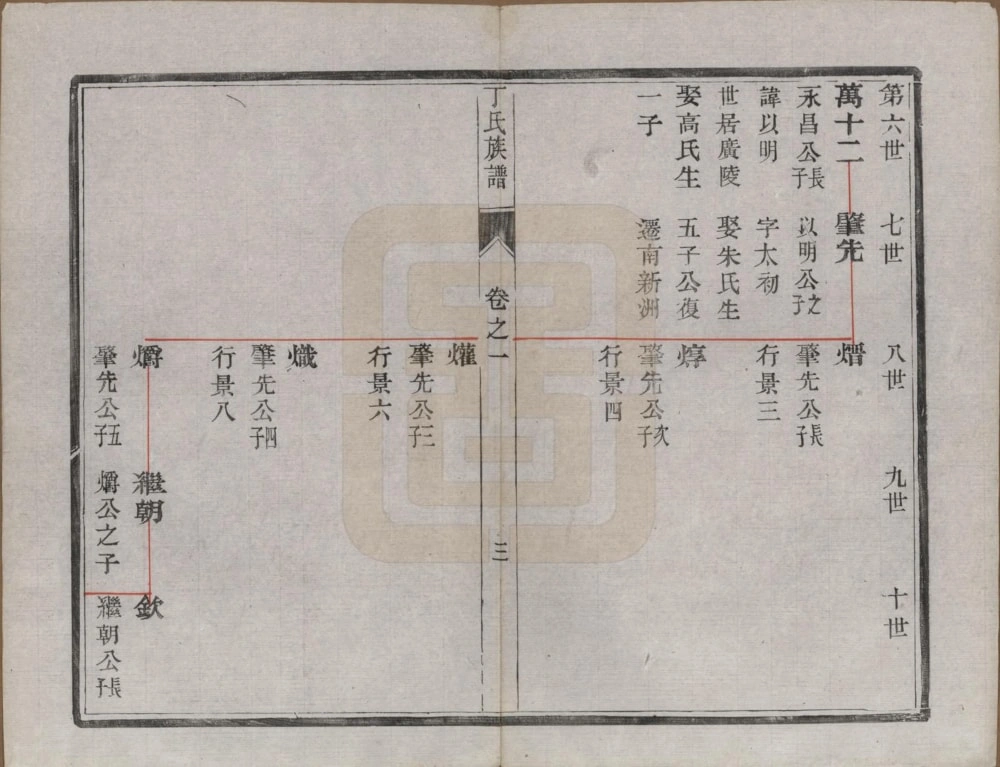 第六世 七世 八世 九世 十世
萬十二 肇先 熸
永昌公長子 以明公之子 肇先公長子
諱以明 字太初 行景三
世居廣陵 娶朱氏生
娶高氏生 五子公復 焞
一子 遷南新洲 肇先公次子
行景四
丁氏族譜 卷之一 三
爟
肇先公三子
行景六
熾
肇先公四子
行景八
爝 繼朝 欽
肇先公五子 爝公之子 繼朝公長子